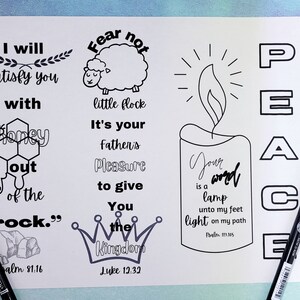 I will
satisfy you
with
Honey
out
of the
rock."
Psalm 81.16
Fear not
little flock
It's your
Father's
Pleasure
to give
You
the
Kingdom
Luke 12.32
Your
word
is a
lamp
unto my feet
light on my path
Psalm 119.105
PEACE